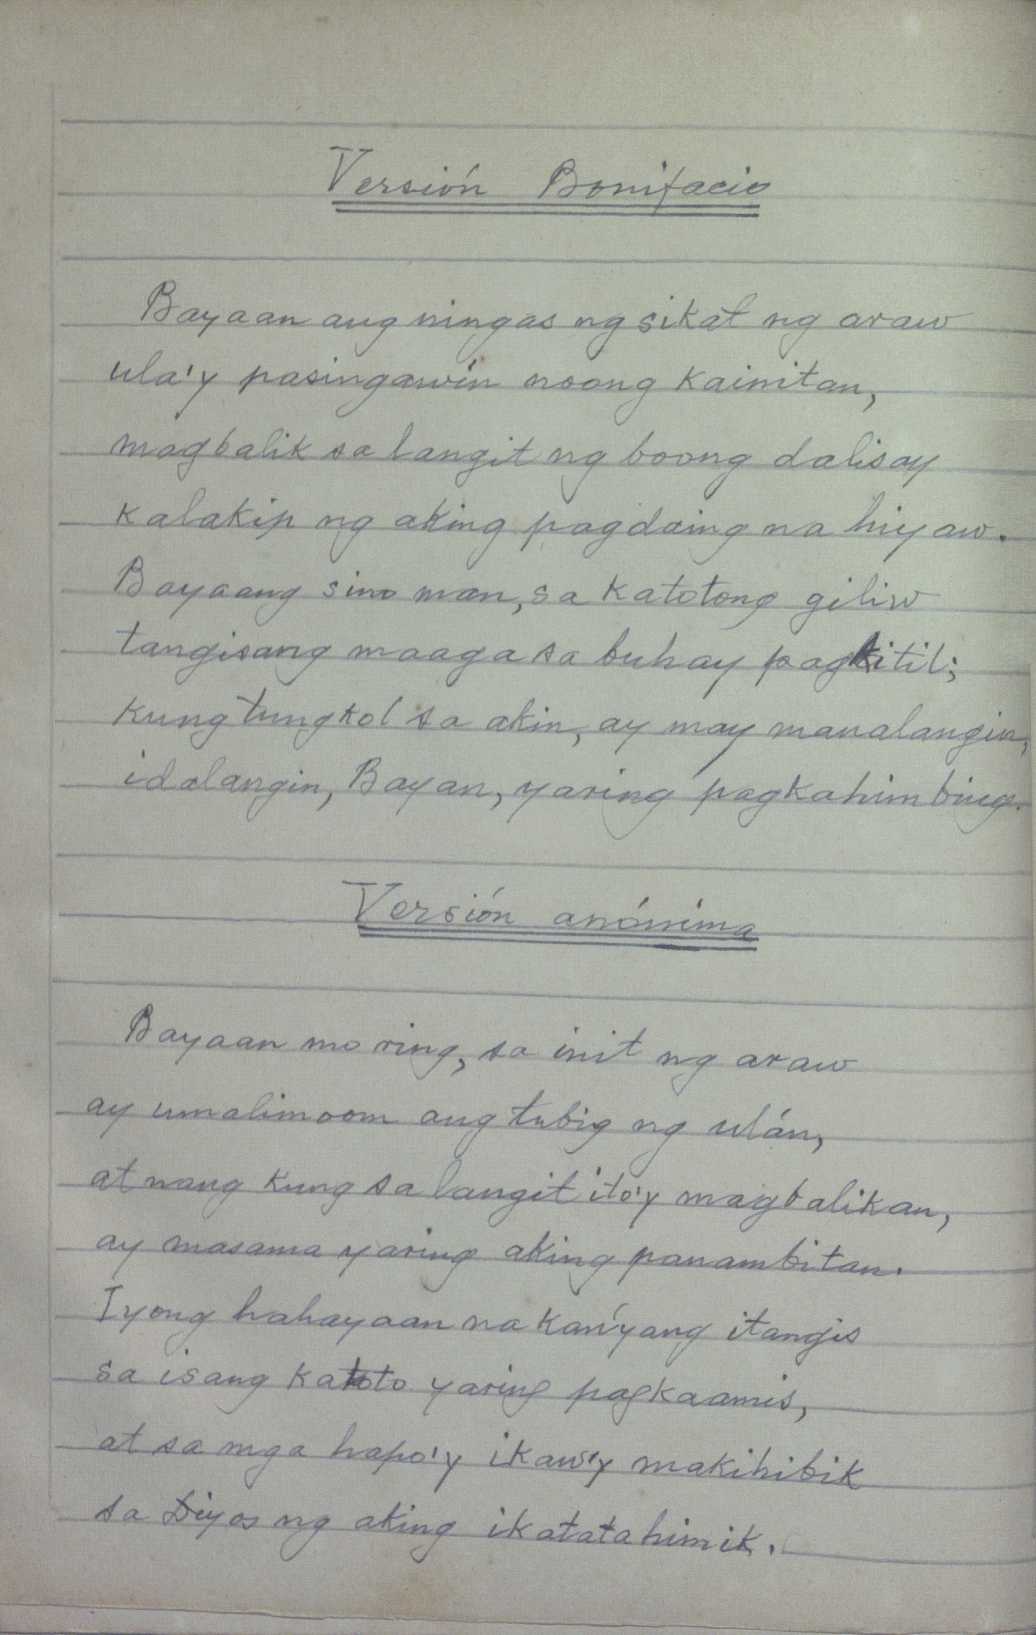 Versión Bonifacio
Bayaan ang ningas ng sikat ng araw
ula'y pasingawín noong kainitan,
magbalik sa langit ng boong dalisay
kalakip ng aking pagdaing na hiyaw.
Bayaang sino man, sa katotong giliw
tangisang maaga sa buhay pagkitil;
kung tungkol sa akin, ay may manalangin,
idalangin, Bayan, yaring pagkahimbing.
Versión anónima
Bayaan mo ring, sa init ng araw
ay umalimoom ang tubig ng ulán,
at nang kung sa langit ito'y magbalikan,
ay masama yaring aking panambitan.
Iyong hahayaan na kan'yang itangis
sa isang katoto yaring pagkaamis,
at sa mga hapo'y ikaw'y makihibik
sa Diyos ng aking ikatatahimik.